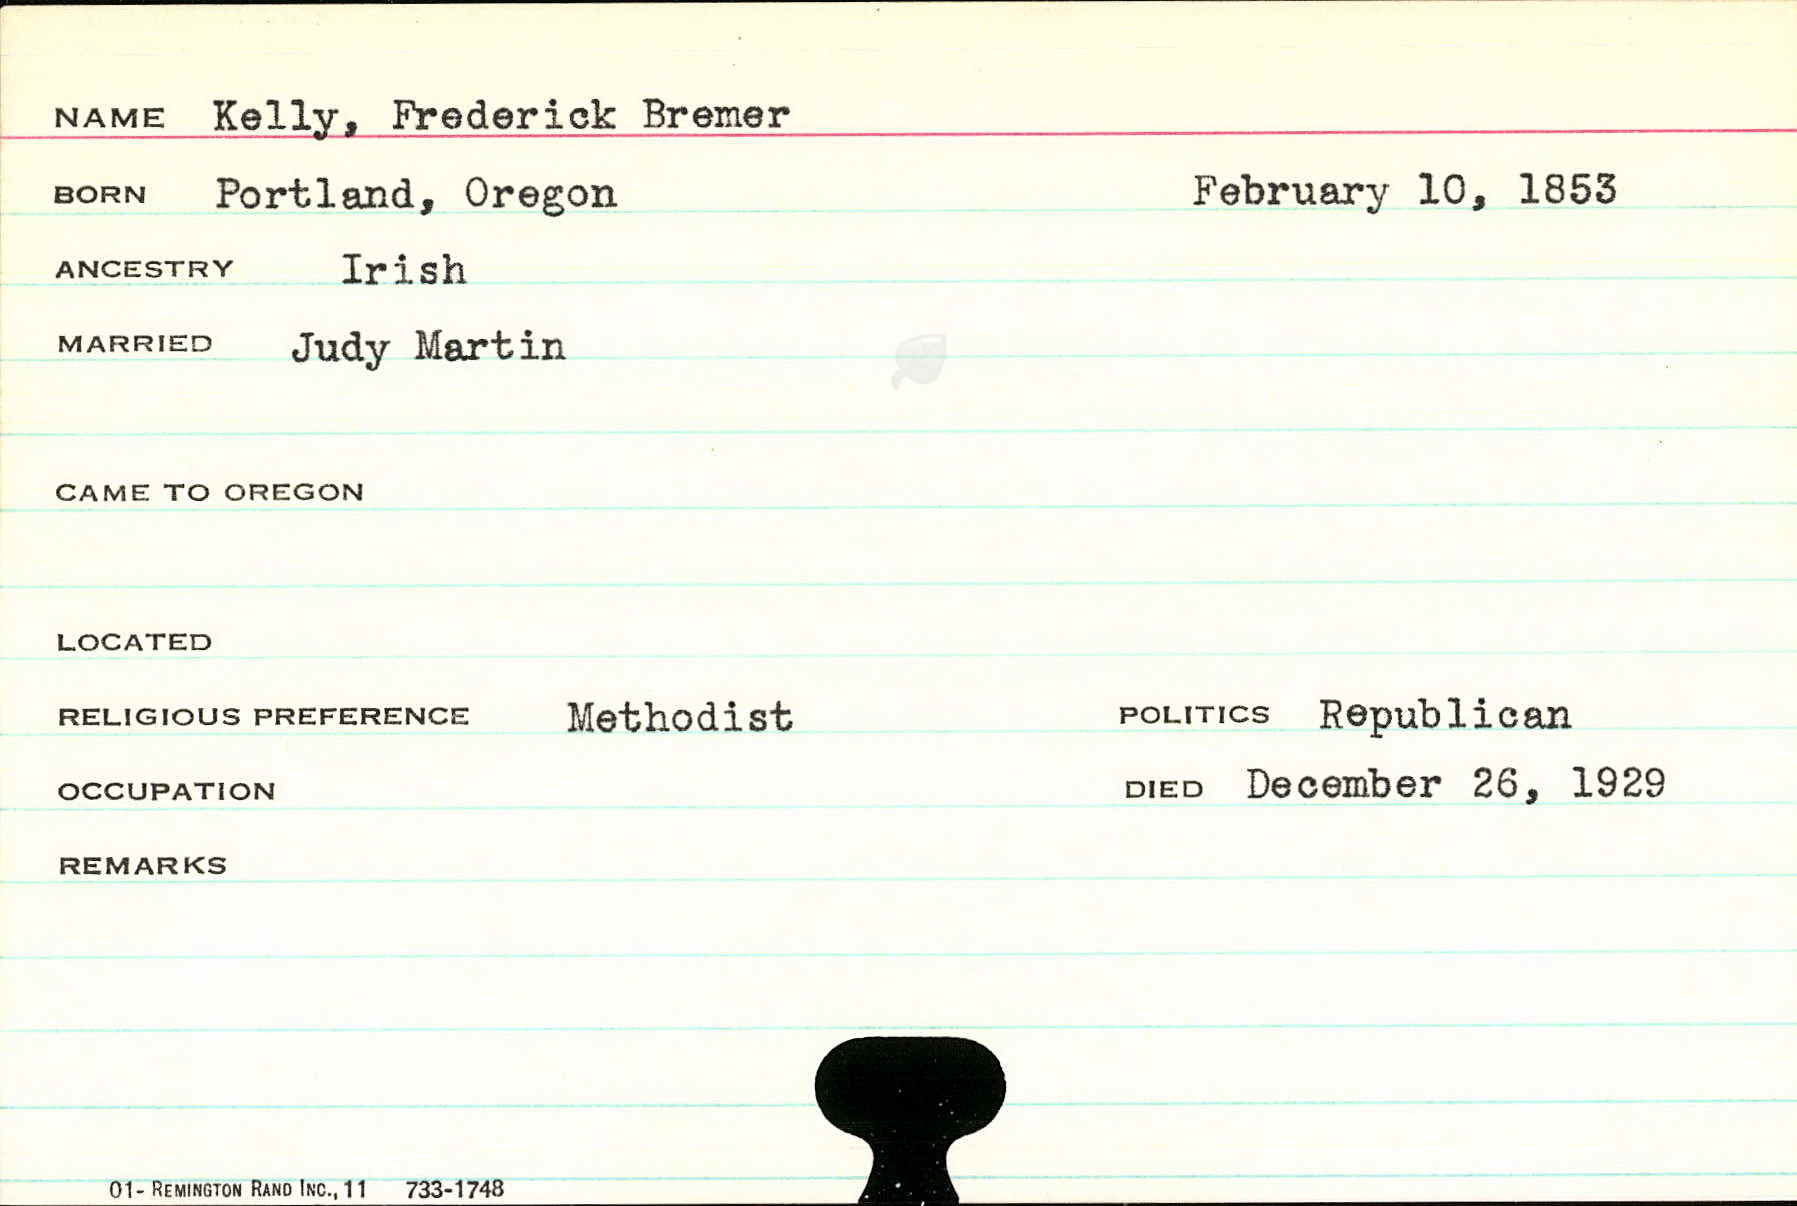 NAME Kelly, Frederick Bremer
BORN Portland, Oregon February 10, 1853
ANCESTRY Irish
MARRIED Judy Martin
CAME TO OREGON
LOCATED
RELIGIOUS PREFERENCE Methodist POLITICS Republican
OCCUPATION DIED December 26, 1929
REMARKS
01- REMINGTON RAND INC., 11 733-1748